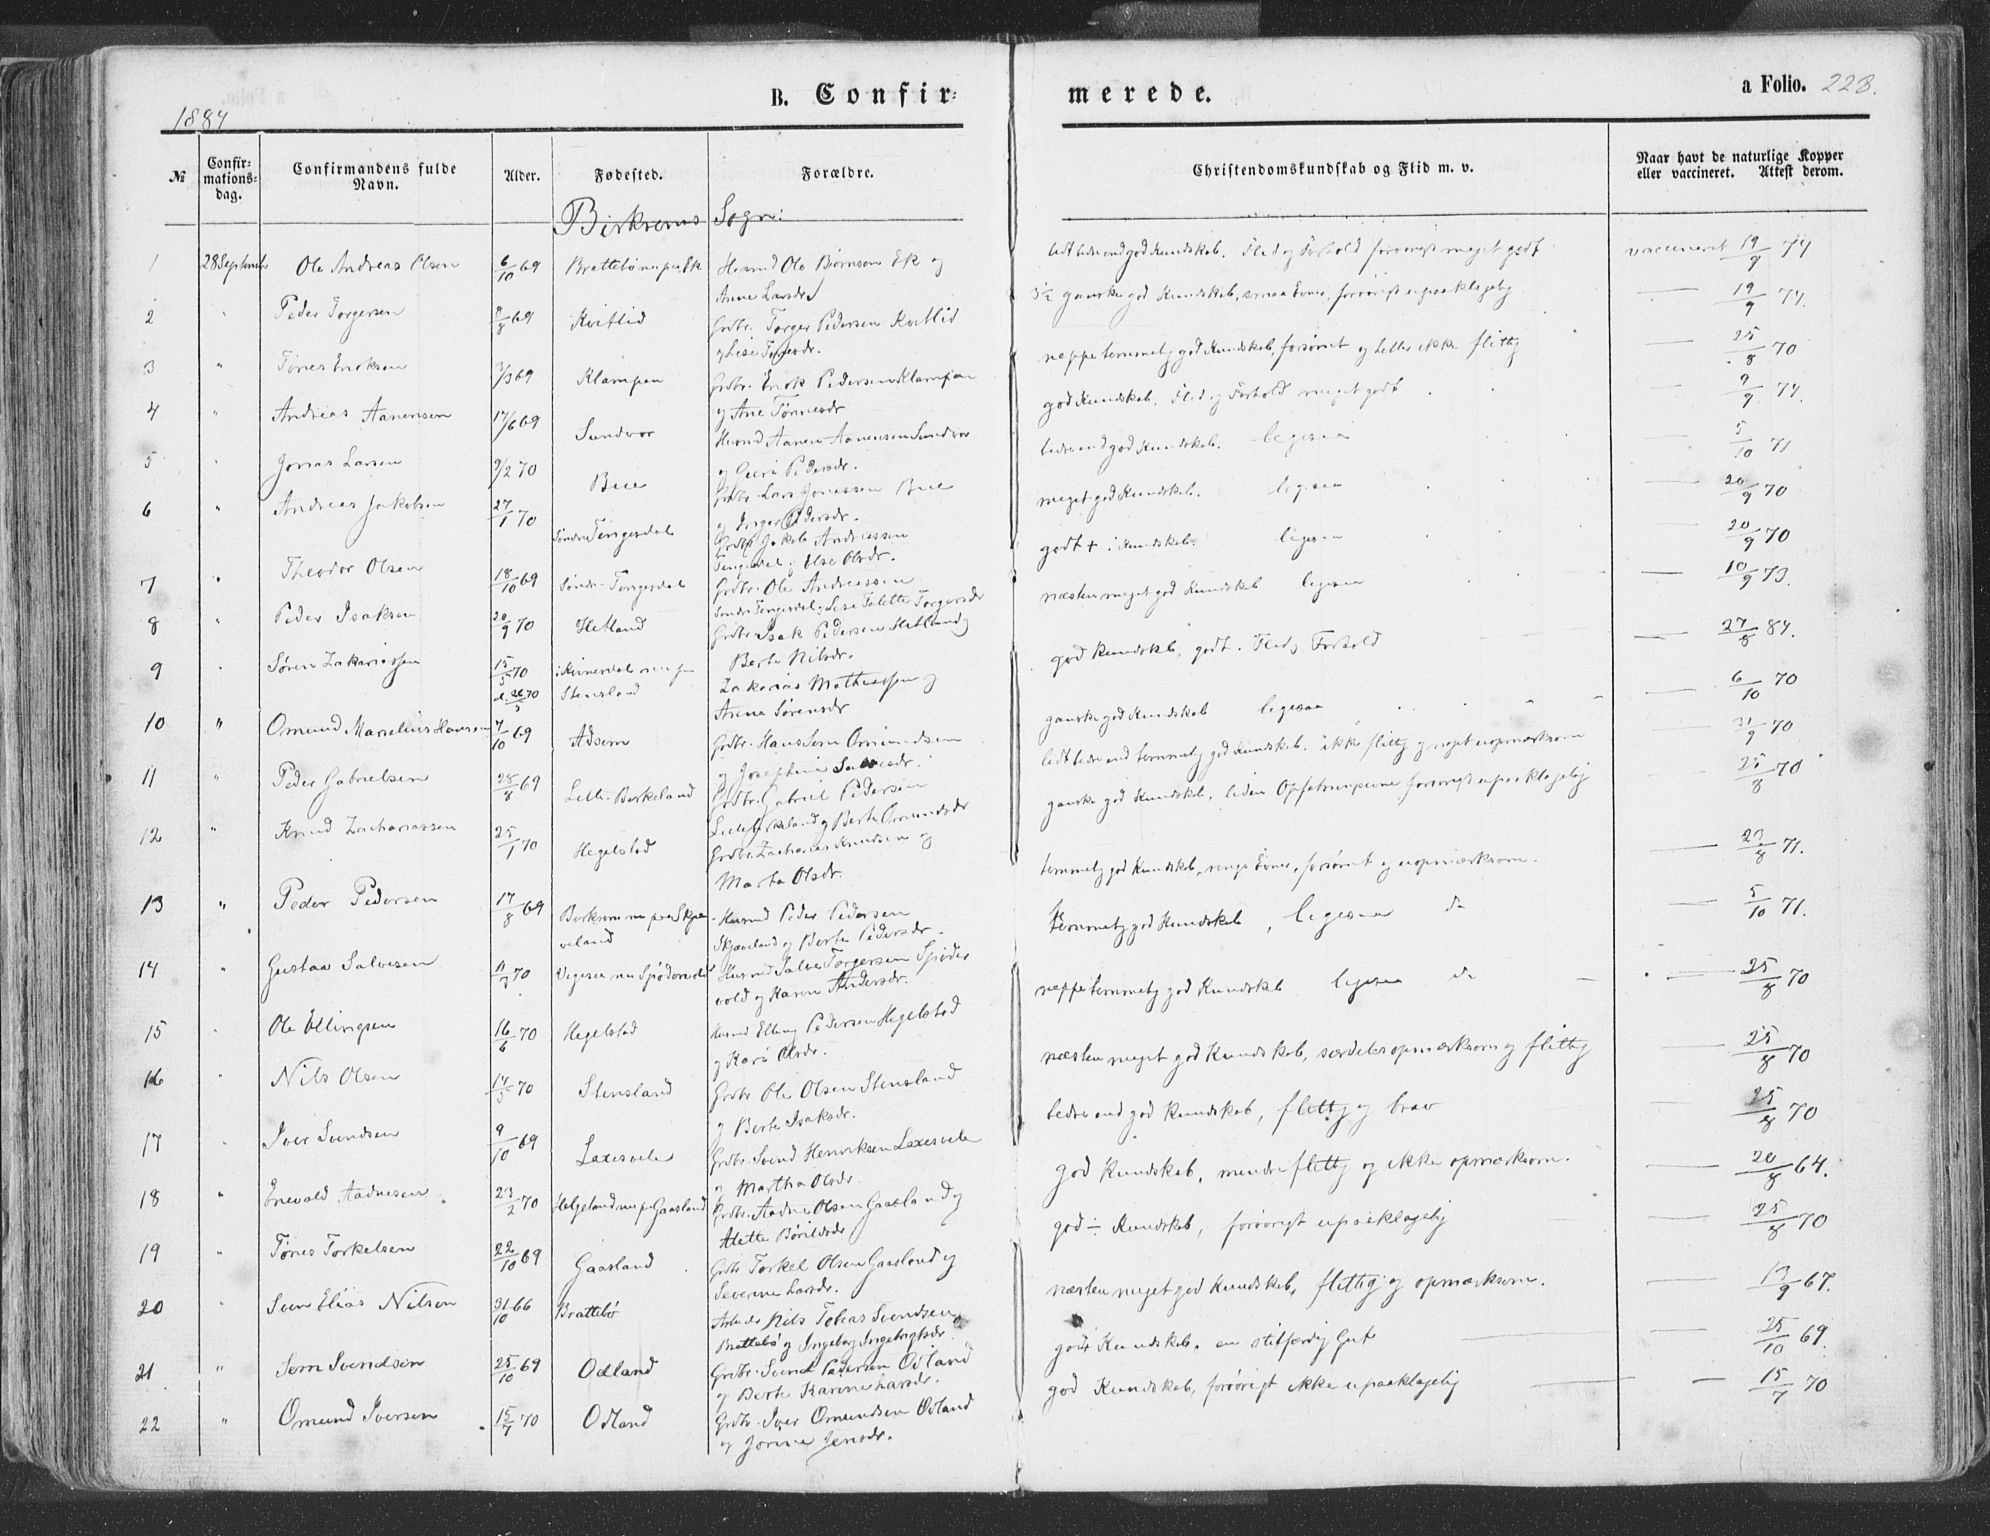 1884
B. Confir=
merede.
a Folio. 223.
№
Confir=
mations=
dag.
Confirmandens fulde
Navn.
Alder.
Fødested.
Forældre.
Christendomskundskab og Flid m. v.
Naar havt de naturlige Kopper
eller vaccineret. Attest derom.
Birkrems Sogn:
1 28 September Ole Andreas Olsen 6/10 69 Brattebø nu paa Ek Husmd Ole Bjørnsen Ek og
Anne Larsdr
lidt bedre end god Kundskab. Flid og Forhold forøvrigt meget godt vaccineret 19/9 74
2 " Peder Torgersen 9/8 69 Kvitlid Grdbr. Torger Pedersen Kvitlid
og Lise
3½ ganske god Kundskab, smaa Evner, forøvrigt upaaklagelig — 19/9 74.
3 " Tønes Eriksen 3/3 69 Klampen Grdbr. Erik Pedersen Klampen
og Ane Tønnesdr
neppe temmelig god Kundskab, forsømt og heller ikke flittig — 25/8 70
4 " Andreas Aanensen 17/6 69 Sundvor Husmd Aanen Aanensen Sundvor
og Guri Pedersdr.
god Kundskab. Flid og Forhold meget godt — 9/9 74.
5 " Jonas Larsen 9/2 70 Bue Grdbr. Lars Jonassen Bue
og Inger Pedersdr.
bedre end god Kundskab. ligesaa — 5/10 71
6 " Andreas Jakobsen 27/1 70 Søndre Tengesdal Grdbr Jakob Andreassen
Tengesdal og Else Olsdr.
meget god Kundskab. ligesaa — 20/9 70
7 " Theodor Olsen 18/10 69 Søndre Tengesdal Grdbr. Ole Andreassen
Søndre Tengesdal og Lise Talette Torgersdr
godt + i Kundskab. ligesaa — 20/9 70
8 " Peder Isaksen 20/9 70 Hetland Grdbr Isak Pedersen Hetland og
Berte Nilsdr.
næsten meget god Kundskab ligesaa — 10/9 73.
9 " Søren Zakariassen 15/5 70 i Kvinesdal nu paa
Stensland Zakarias Mathiassen og
Asena Sørensdr
god Kundskab, godt i Flid og Forhold — 27/8 84.
10 " Omund Marselius Hansen 7/10 69 Adsem Grdbr. Hans Sem Omundsen
og Josephine
ganske god Kundskab ligesaa — 6/10 70
11 " Peder Gabrielsen 28/8 69 Lille Birkeland Grdbr. Gabriel Pedersen
Lille Birkeland og Berte Omundsdr
lidt bedre end temmelig god Kundskab. ikke flittig og meget uopmærksom — 31/9 70
12 " Knud Zachariassen 25/1 70 Hegelstad Grdbr. Zacharias Knudsen og
Marta Olsdr.
ganske god Kundskab, liden Opfatningsevne forøvrigt upaaklagelig — 25/8 70
13 " Peder Pedersen 17/8 69 Birkrem nu paa Skjæ-
veland Husmd Peder Pedersen
Skjæveland og Berte Pedersdr.
temmelig god Kundskab, ringe Evner, forsømt og uopmærksom. — 23/8 71.
14 " Gustav Salvesen 11/3 70 Vegesaa nu Spjodevold Husmd Salve Torgersen Spjode
vold og Karen Andersdr.
temmelig god Kundskab, ligesaa do — 5/10 71.
15 " Ole Ellingsen 16/6 70 Hegelstad Husmd Elling Pedersen Hegelstad
og Kari Olsdr.
neppe temmelig god Kundskab ligesaa do — 25/8 70
16 " Nils Olsen 14/5 70 Stensland Grdbr Ole Olsen Stensland
og Berte Isaksdr.
næsten meget god Kundskab, særdeles opmærksom og flittig — 25/8 70
17 " Iver Svendsen 9/10 69 Laxesvela Grdbr. Svend Henriksen Laxesvela
og Martha Olsdr.
bedre end god Kundskab, flittig og brav — 25/8 70
18 " Enevald Aadnesen 23/2 70 Helgeland nu p. Gaasland Grdbr. Aadne Olsen Gaasland og
Alette Bårildsdr
god Kundskab, mindre flittig og ikke opmærksom. — 20/8 64.
19 " Tønes Torkelsen 22/10 69 Gaasland Grdbr Torkel Olsen Gaasland og
Severine Larsdr.
god ÷ Kundskab, forøvrigt upaaklagelig — 25/8 70
20 " Sven Elias Nilsen 31/10 66 Brattebø Arbeider Nils Tobias Svendsen
Brattebø og Ingeborg Ingebrigtsdr.
næsten meget god Kundskab, flittig og opmærksom. — 13/9 67.
21 " Sem Svendsen 25/10 69 Odland Grdbr. Svend Pedersen Odland
og Berte Karine Larsdr.
godt Kundskab, en stilfærdig Gut — 25/10 69
22 " Omund Iversen 15/7 70 Odland Grdbr. Iver Omundsen Odland
og Jorine Jensdr.
god Kundskab, forøvrigt ikke upaaklagelig — 15/7 70